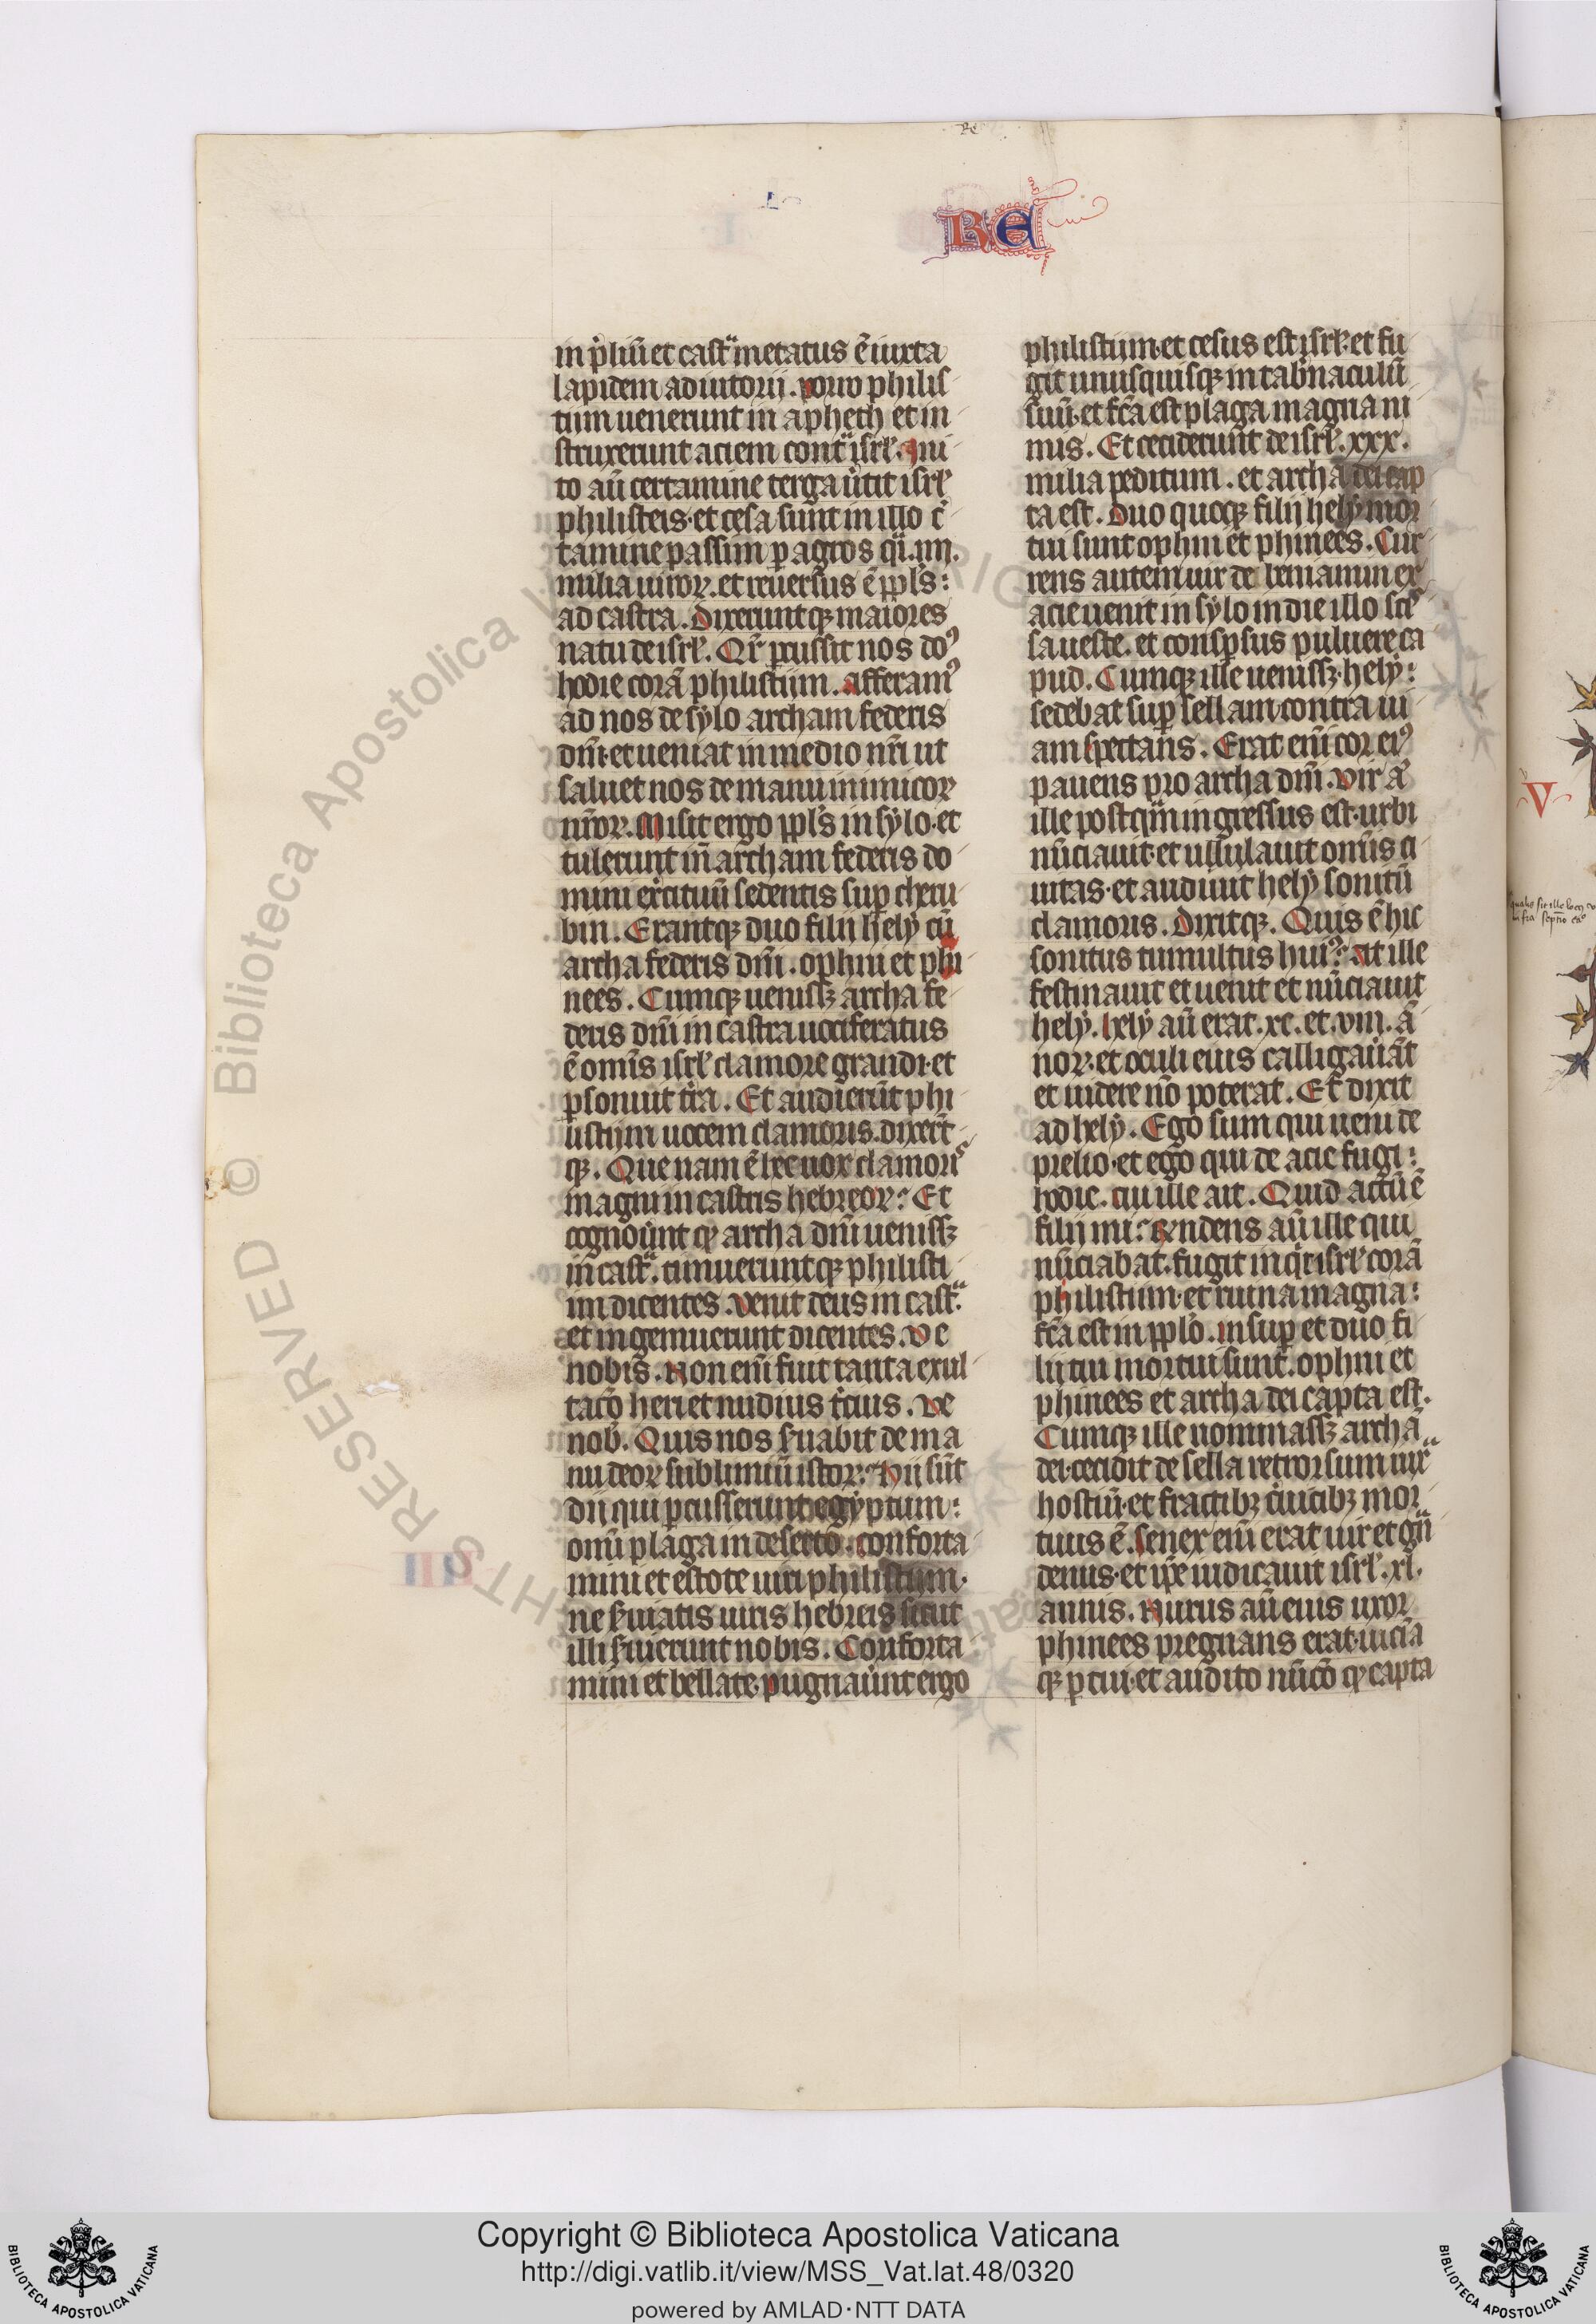 Re
L
RE
in p̄liū et castᷓ metatus ē iuxta
lapidem adiutorii. porro philis
tiim uenerunt in aphech et in
struxerunt aciem contᷓ isrł. Ini
to aū certamine terga ũtit isrł
philisteis. et cesa sunt in illo c̃
tamine passim ꝑ agros qͣi .iiii.
milia uiroꝝ. et reuersus ē ppl̄s:
ad castra. Dixeruntqꝫ maiores
natu de isrł. Qr̄ ꝑcussit nos doꝰ
hodie corā philistiim. Afferamꝰ
ad nos de sylo archam federis
dn̄i. et ueniat in medio nr̄i ut
saluet nos de manu inimicoꝝ
nr̄oꝝ. Misit ergo ppl̄s in sylo. et
tulerunt in̄ archam federis do
mini exc̃ituū sedentis suꝑ cheru
bin. Erantqꝫ duo filii hely cū
archa federis dn̄i. ophni et phi
nees. Cumqꝫ uenissꝫ archa fe
deris dn̄i in castra uociferatus
ē om̄is isrł clamore grandi. et
ꝑsonuit t̄ra. Et audierūt phi
listiim uocem clamoris. dixer̄t
qꝫ. Que nam ē hec uox clamoris
magni in castris hebreoꝝ? Et
cognoũnt ꝙ archa dn̄i uenissꝫ
in castᷓ. timueruntqꝫ philisti
im dicentes. Venit deus in castᷓ.
et ingemuerunt dicentes. Ve
nobis. Non eni᷃ fuit tanta exul
tac̄o heri et nudius t̄cius. Ve
nob̄. Quis nos s̃uabit de ma
nu deoꝝ sublimiū istoꝝ? Hii sūt
dii qui ꝑcusserunt egyptum:
om̄i plaga in deserto. Conforta
mini et estote uiri philistiim.
ne s̃uiatis uiris hebreis sicut
illi s̃uierunt nobis. Conforta
mini et bellate. pugnaũnt ergo
philistiim. et cesus est isrł. et fu
git unusquisqꝫ in tab̄naculū
suū. et fc̄a est plaga magna ni
mis. Et ceciderunt de isrł .xxx.
milia peditum. et archa dei cap
ta est. Duo quoqꝫ filii hely mor
tui sunt ophni et phinees. Cur
rens autem uir de beniamin ex
acie uenit in sylo in die illo scis
sa ueste. et consꝑsus puluere ca
pud. Cumqꝫ ille uenissꝫ. hely:
sedebat suꝑ sellam contra ui
am spectans. Erat eni᷃ cor eiꝰ
pauens pro archa dn̄i. Vir aū
ille postqm̄ ingressus est. urbi
nūciauit. et ullulauit om̄is ci
uitas. et audiuit hely sonitū
clamoris. Dixitqꝫ. Quis ē hic
sonitus tumultus huiꝰ? At ille
festinauit et uenit et nūciauit
hely. hely aū erat .xc. et .viii. ā
noꝝ. et oculi eius calligauāt
et uidere nō poterat. Et dixit
ad hely. Ego sum qui ueni de
prelio. et ego qui de acie fugi:
hodie. Cui ille ait. Quid actū ē
fili mi? Rn̄dens aū ille qui
nūciabat. fugit inqͥt isrł corā
philistiim. et ruina magna:
fc̄a est in ppl̄o. Insuꝑ et duo fi
lii tui mortui sunt. ophni et
phinees et archa dei capta est.
Cumqꝫ ille nominassꝫ archā
dei. cecidit de sella retrorsum iuxᷓ
hostiū. et fractibꝫ c̃uicibꝫ mor
tuus ē. Senex eni᷃ erat uir et gͣn
deuus. et ip̄e iudicauit isrł .xl.
annis. Nurus aū eius uxor
phinees pregnans erat. uicīa
qꝫ ꝑtui. et audito nūco᷃ ꝙ capta
V
Copyright © Biblioteca Apostolica Vaticana
http://digi.vatlib.it/view/MSS_Vat.lat.48/0320
powered by AMLAD·NTT DATA
BIBLIOTECA APOSTOLICA VATICANA
BIBLIOTECA APOSTOLICA VATICANA